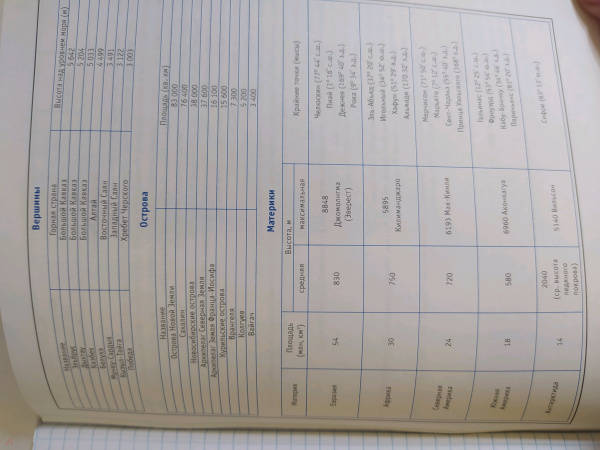 Вершины
Название Горная страна Высота над уровнем моря (м)
Эльбрус Большой Кавказ 5 642
Дыхтау Большой Кавказ 5 204
Казбек Большой Кавказ 5 033
Белуха Алтай 4 499
Мунку-Сардык Восточный Саян 3 491
Кызыл-Тайга Западный Саян 3 122
Победа Хребет Черского 3 003
Острова
Название Площадь (кв. км)
Острова Новой Земли 83 000
Сахалин 76 400
Новосибирские острова 38 000
Архипелаг Северная Земля 37 600
Архипелаг Земля Франца-Иосифа 16 100
Курильские острова 15 600
Врангеля 7 300
Колгуев 5 200
Вайгач 3 400
Материки
Материк Площадь (млн. км²) Высота, м Крайние точки (мысы)
средняя максимальная
Евразия 54 830 8848 Джомолунгма (Эверест)
Челюскин (77° 44' с.ш.)
Пиай (1° 16' с.ш.)
Дежнев (169° 40' з.д.)
Рока (9° 34' з.д.)
Африка 30 750 5895 Килиманджаро
Эль-Абьяд (37° 20' с.ш.)
Игольный (34° 52' ю.ш.)
Хафун (51° 24' в.д.)
Альмади (17° 32' з.д.)
Северная Америка 24 720 6193 Мак-Кинли
Мерчисон (71° 50' с.ш.)
Марьято (7° 12' с.ш.)
Сент-Чарльз (55° 40' з.д.)
Принца Уэльского (168° з.д.)
Южная Америка 18 580 6960 Аконкагуа
Гальинас (12° 25' с.ш.)
Фроуэрд (53° 54' ю.ш.)
Кабу-Бранку (34° 46' з.д.)
Париньяс (81° 20' з.д.)
Антарктида 14 2040 (ср. высота ледяного покрова) 5140 Винсон
Сифре (63° 13' ю.ш.)